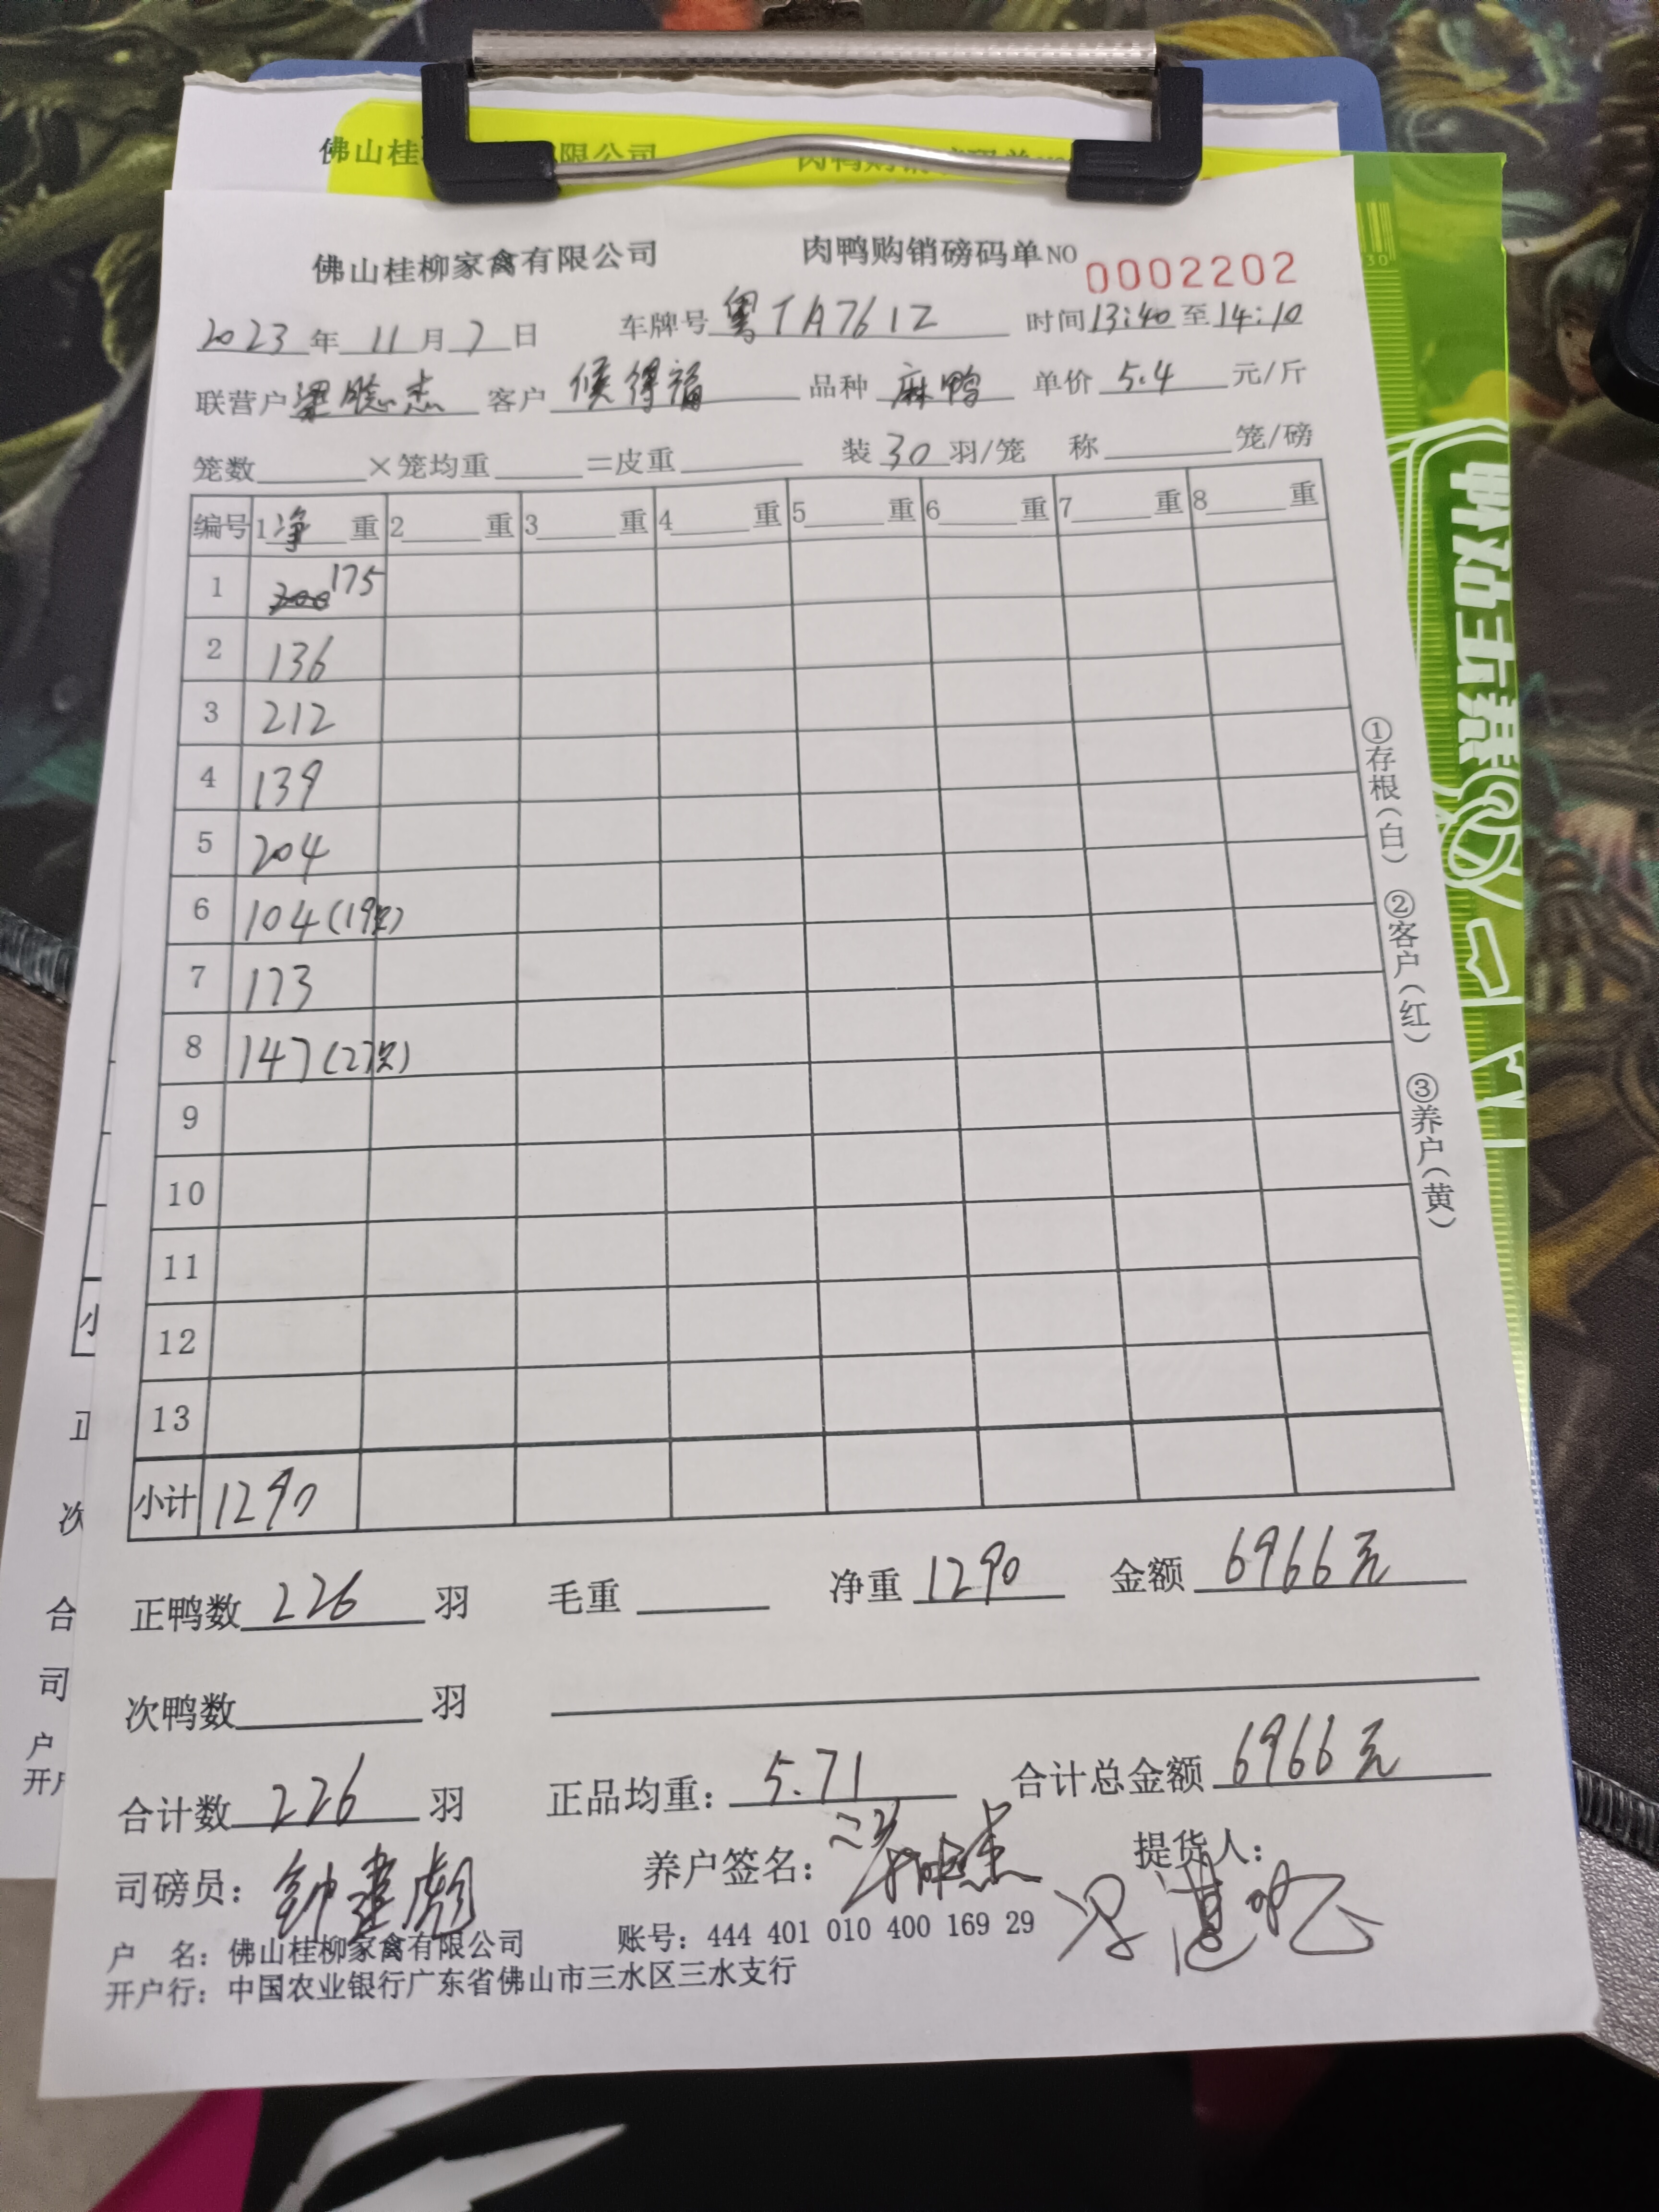 佛山桂柳家禽有限公司 肉鸭购销磅码单NO 0002202
2023年11月7日 车牌号 粤TA761Z 时间13:40至14:10
联营户 梁聪杰 客户 候得福 品种 麻鸭 单价 5.4 元/斤
笼数 ×笼均重 =皮重 装 30 羽/笼 称 笼/磅
编号 1净重 2 重 3 重 4 重 5 重 6 重 7 重 8 重
1 200 175
2 136
3 212
4 139
5 204
6 104(19只)
7 173
8 147(27只)
9
10
11
12
13
小计 1290
正鸭数 226 羽 毛重 净重 1290 金额 6966元
次鸭数 羽
合计数 226 羽 正品均重: 5.71 合计总金额 6966元
司磅员: 钟建彪 养户签名: 提货人:
户 名: 佛山桂柳家禽有限公司 账号: 444 401 010 400 169 29
开户行: 中国农业银行广东省佛山市三水区三水支行
①存根(白) ②客户(红) ③养户(黄)